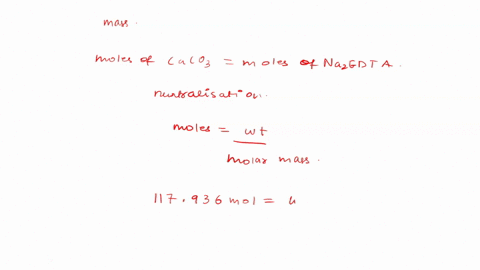 mass.
moles of CaCO3 = moles of Na2EDTA.
nutralisation.
moles = wt
molar mass.
117.936 mol =